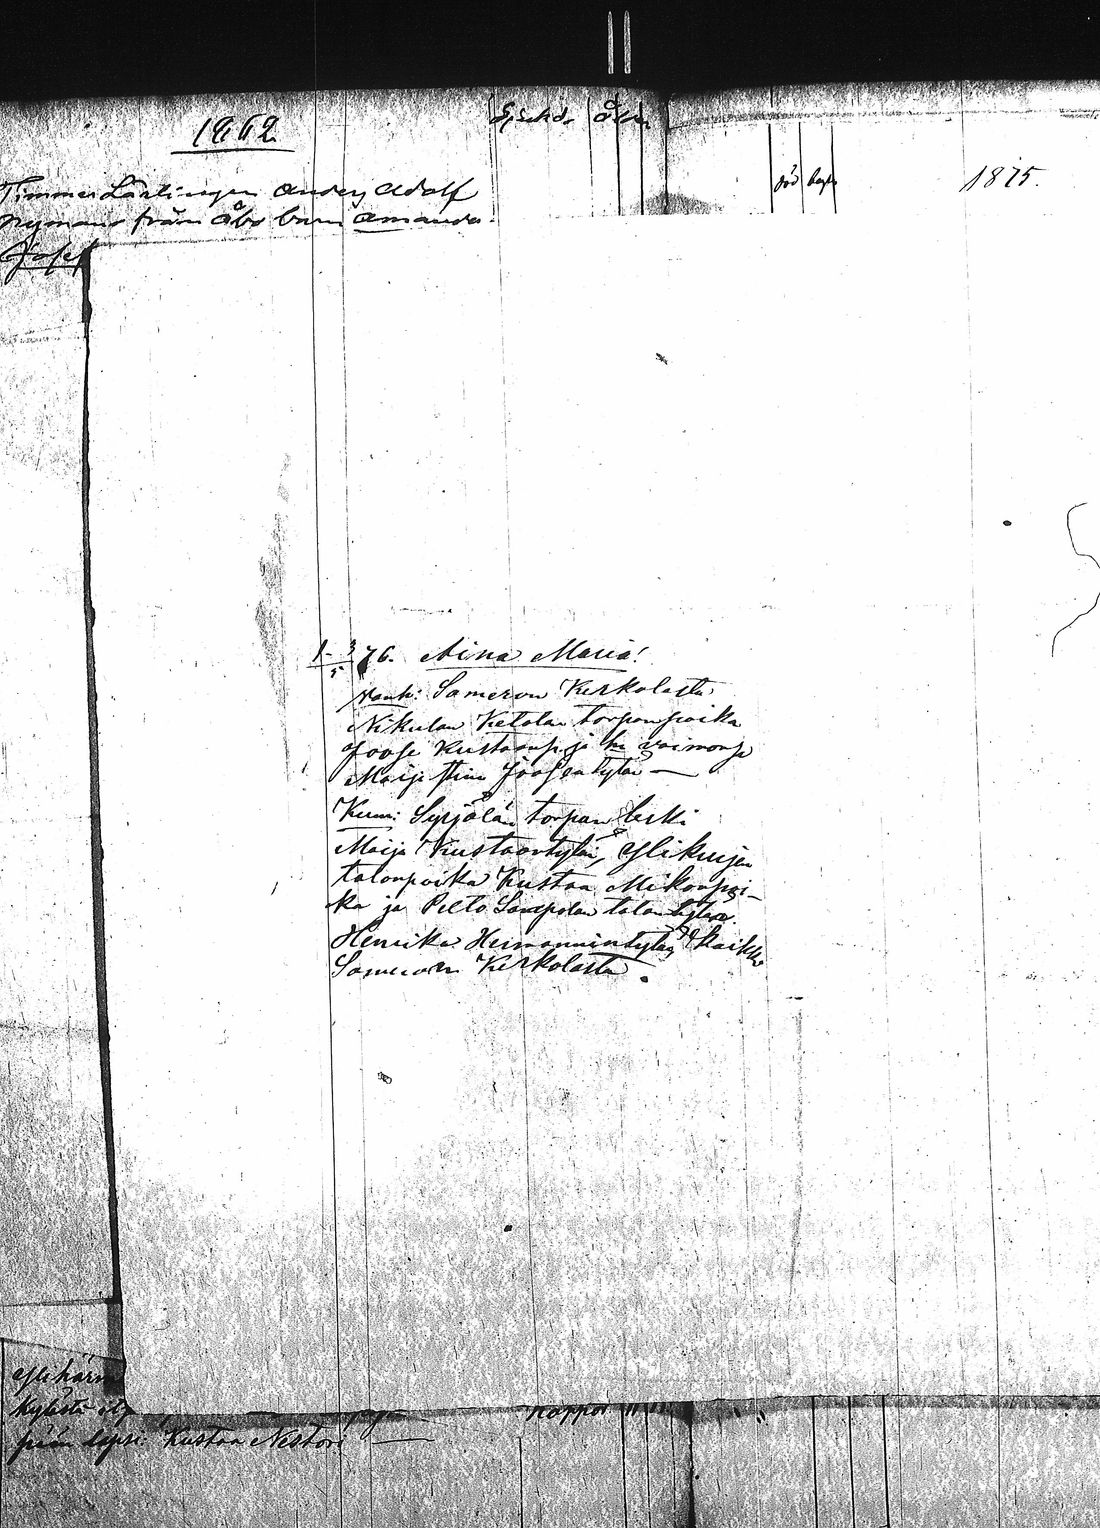 1862
Sjukd. Ålder
död begr. 1875.
Timmer Lärlingen Anders Adolf
Nymans från Åbo barn Amanda
Josef
1/5 - 3 76. Aina Maria!
Vanh: Someron Kerkolasta
Nikulan Ketolan torpanpoika
Joose Kustaanp. ja hn vaimonsa
Maija Stiin Joosentytär —
Kum: Syrjälän torpan leski
Maija Kustaantytär, Ylikuijan
talonpoika Kustaa Mikonpoi-
ka ja talon tytär
Henrika Hermannintytär, kaikki
Someron Kerkolasta.
Kylästä
lapsi: Kustaa Nestori —